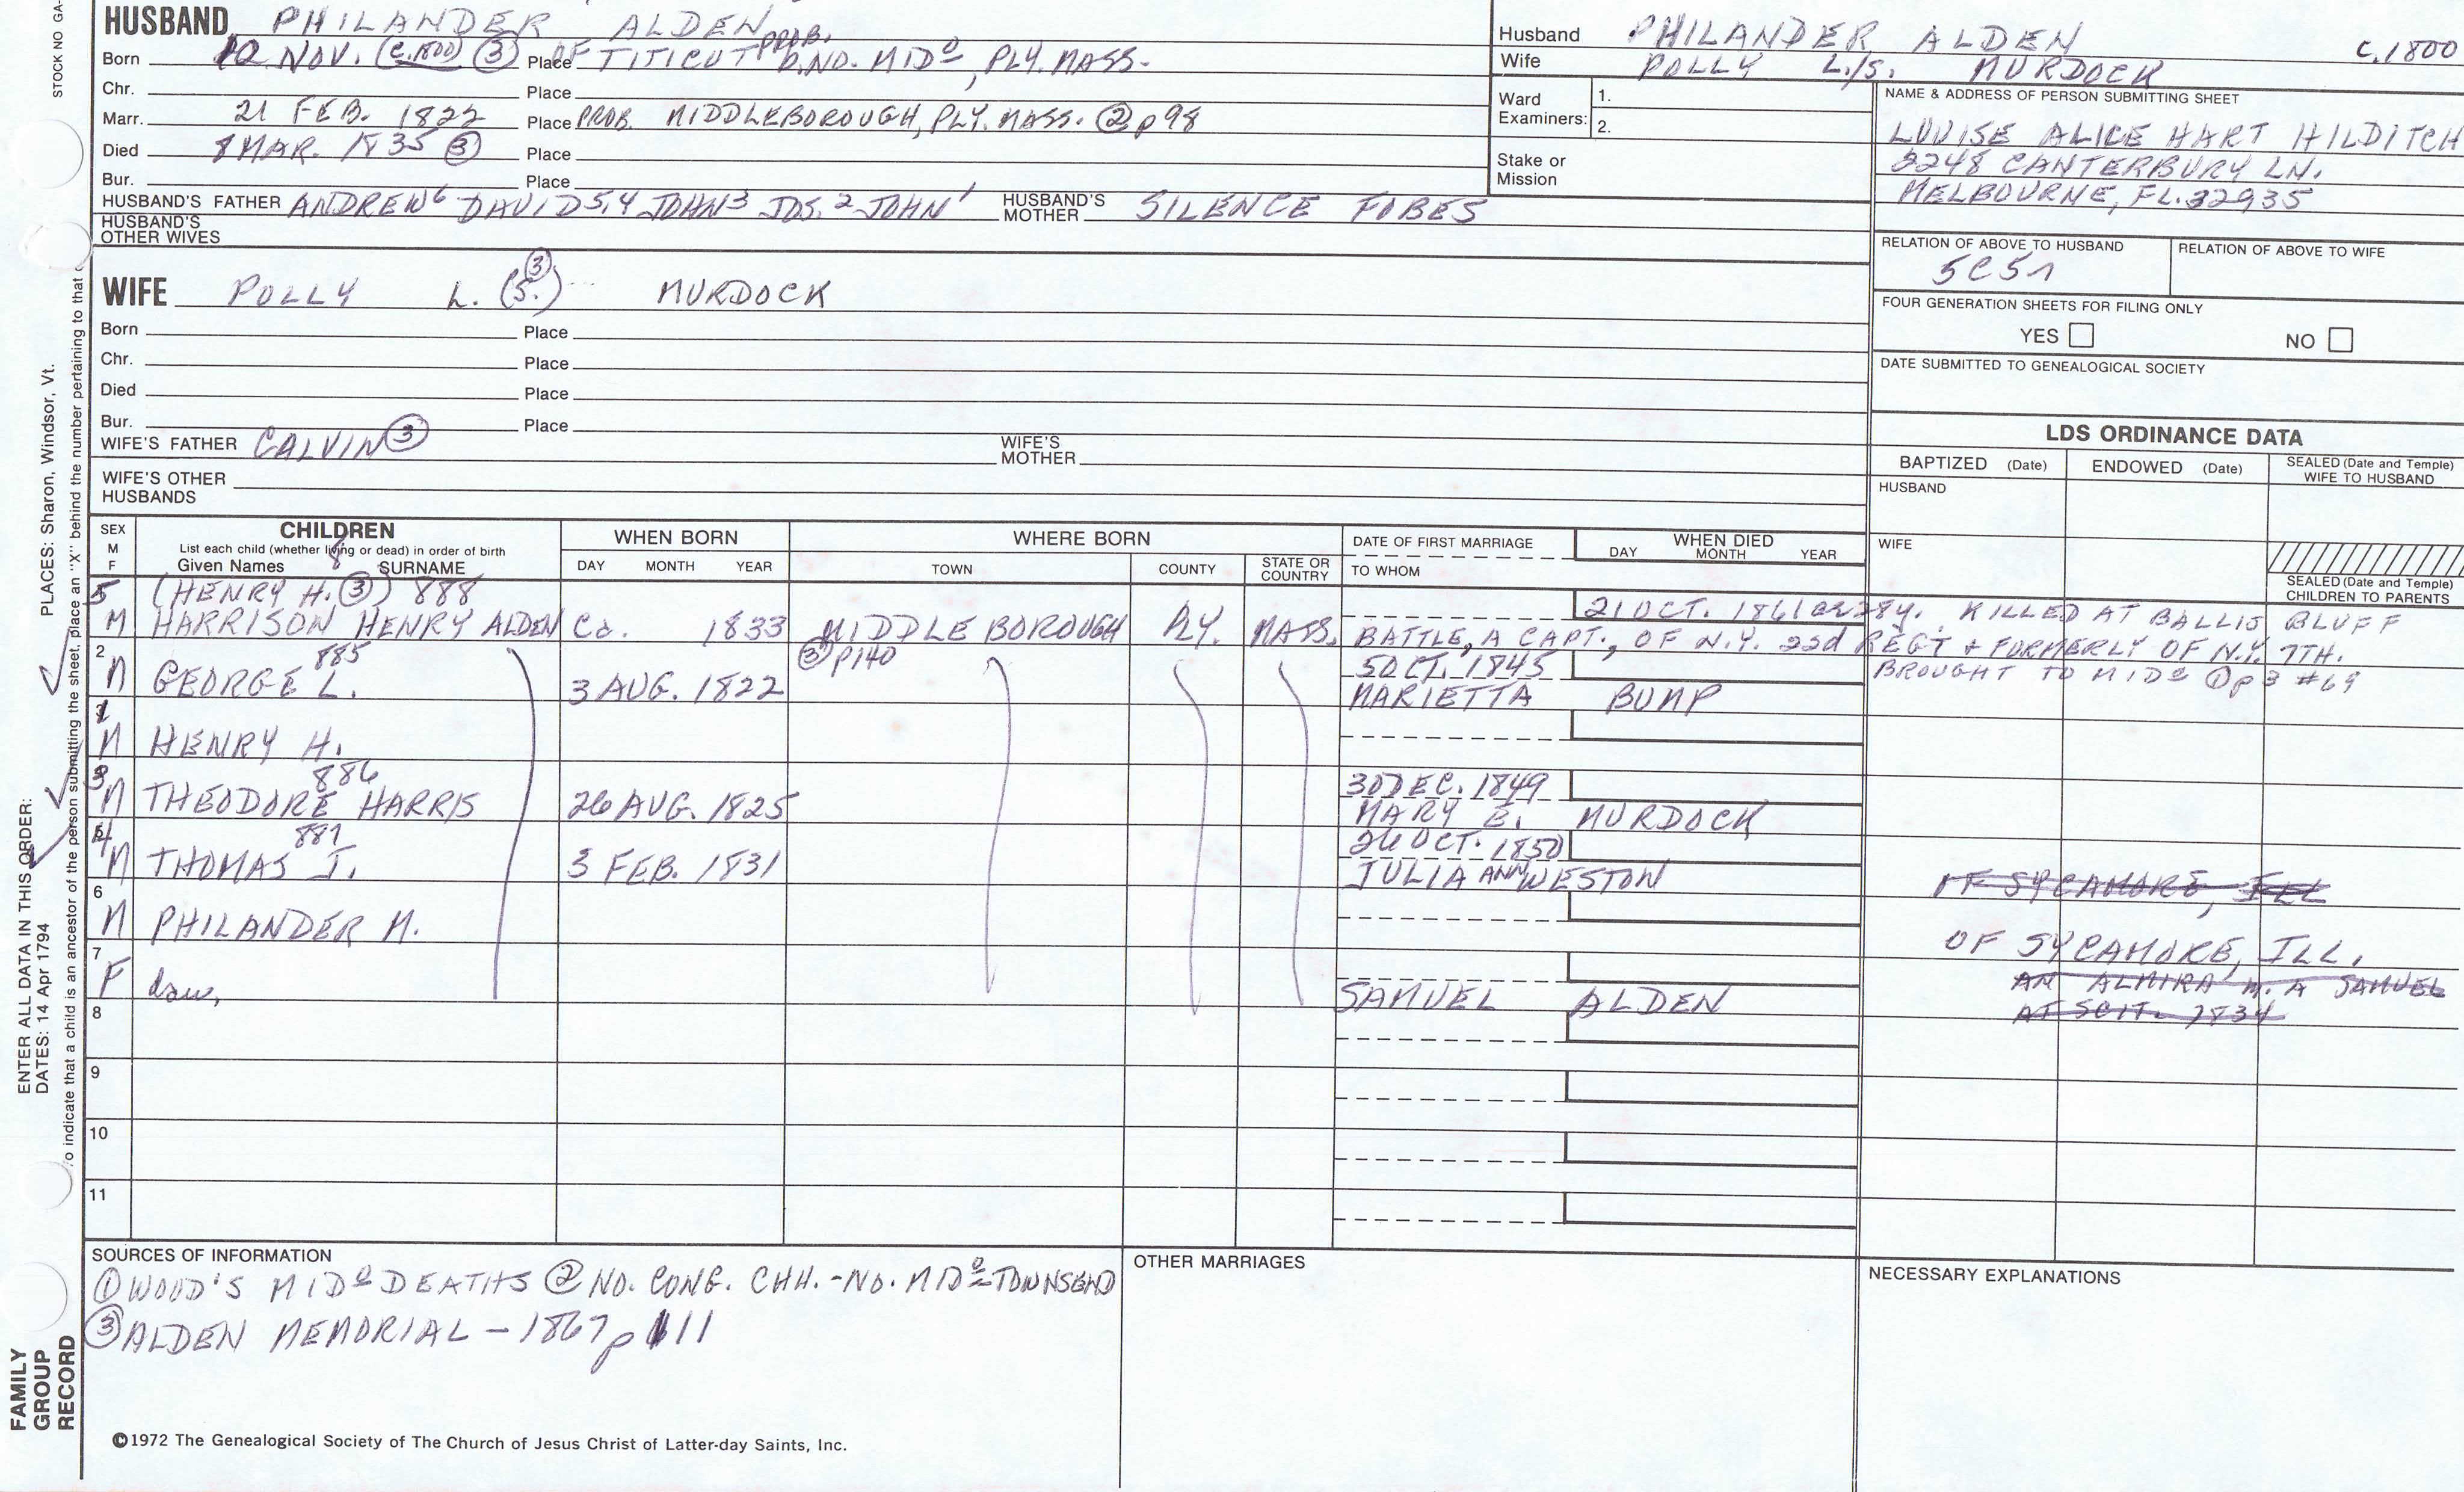 STOCK NO GA-
HUSBAND PHILANDER ALDEN
Born 12 NOV. (C. 1800) ③ Place OF TITICUT PROB. B. NO. MIDº, PLY. MASS.
Chr. Place
Marr. 21 FEB. 1822 Place PROB. MIDDLEBOROUGH, PLY. MASS. ② p 98
Died 8 MAR. 1835 ③ Place
Bur. Place
HUSBAND'S FATHER ANDREW6 DAVID5,4 JOHN3 JOS.2 JOHN1 HUSBAND'S MOTHER SILENCE FOBES
HUSBAND'S OTHER WIVES
Husband PHILANDER ALDEN C. 1800
Wife POLLY L./S. MURDOCK
Ward Examiners: 1.
2.
Stake or Mission
NAME & ADDRESS OF PERSON SUBMITTING SHEET
LOUISE ALICE HART HILDITCH
2248 CANTERBURY LN.
MELBOURNE, FL. 32935
RELATION OF ABOVE TO HUSBAND RELATION OF ABOVE TO WIFE
FOUR GENERATION SHEETS FOR FILING ONLY
YES NO
DATE SUBMITTED TO GENEALOGICAL SOCIETY
WIFE POLLY L. (S.) ③ MURDOCK
Born Place
Chr. Place
Died Place
Bur. Place
WIFE'S FATHER CALVIN ③ WIFE'S MOTHER
WIFE'S OTHER HUSBANDS
LDS ORDINANCE DATA
BAPTIZED (Date) ENDOWED (Date) SEALED (Date and Temple) WIFE TO HUSBAND
HUSBAND
WIFE
SEALED (Date and Temple) CHILDREN TO PARENTS
SEX M F CHILDREN WHEN BORN WHERE BORN DATE OF FIRST MARRIAGE WHEN DIED
List each child (whether living or dead) in order of birth
Given Names SURNAME DAY MONTH YEAR TOWN COUNTY STATE OR COUNTRY TO WHOM DAY MONTH YEAR
5 (HENRY H. ③) 888 21 OCT. 1861 28y. KILLED AT BALLIS BLUFF
M HARRISON HENRY ALDEN Ca. 1833 MIDDLEBOROUGH PLY. MASS. BATTLE, A CAPT., OF N.Y. 22d REGT & FORMERLY OF N.Y. 7TH.
③ p140 BROUGHT TO MIDº ① p 3 #69
2 885 5 OCT. 1845
M GEORGE L. 3 AUG. 1822 MARIETTA BUMP
M HENRY H.
3 886 30 DEC. 1849
M THEODORE HARRIS 26 AUG. 1825 MARY B. MURDOCK
4 887 26 OCT. 1850
M THOMAS J. 3 FEB. 1831 JULIA ANN WESTON
OF SYCAMORE, ILL
6
M PHILANDER M. OF SYCAMORE, ILL.
7 AN ALMIRA m. A SAMUEL
F dau. SAMUEL ALDEN AT SCIT. 1834
8
9
10
11
SOURCES OF INFORMATION
① WOOD'S MIDº DEATHS ② NO. CONG. CHH. - NO. MIDº - TOWNSEND
③ ALDEN MEMORIAL - 1867 p 11
OTHER MARRIAGES
NECESSARY EXPLANATIONS
©1972 The Genealogical Society of The Church of Jesus Christ of Latter-day Saints, Inc.
ENTER ALL DATA IN THIS ORDER:
DATES: 14 Apr 1794
PLACES: Sharon, Windsor, Vt.
To indicate that a child is an ancestor of the person submitting the sheet, place an "X" behind the number pertaining to that
FAMILY GROUP RECORD